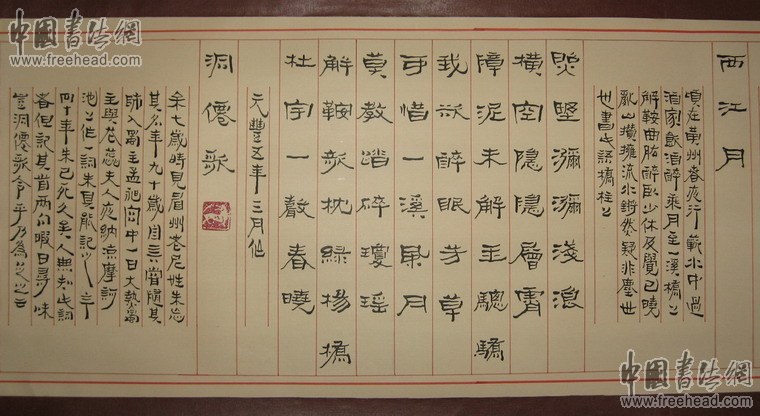 中國書法網
www.freehead.com
西江月
頃在黃州春夜行蘄水中過
酒家飲酒醉乘月至一溪橋上
解鞍曲肱醉臥少休及覺已曉
亂山攢擁流水鏘然疑非塵世
也書此語橋柱上
照壄瀰瀰淺浪
橫空隱隱層霄
障泥未解玉驄驕
我欲醉眠芳草
可惜一溪風月
莫教踏碎瓊瑤
解鞍欹枕綠楊橋
杜宇一聲春曉
元豐五年三月作
洞僊歌
余七歲時見眉州老尼姓朱忘
其名年九十歲自言嘗隨其
師入蜀主孟昶宮中一日大熱蜀
主與花蕊夫人夜納涼摩訶
池上作一詞朱具能記之今
四十年朱已死久矣人無知此詞
者但記其首兩句暇日尋味
豈洞僊歌令乎乃為足之云
中國書法網
www.freehead.com